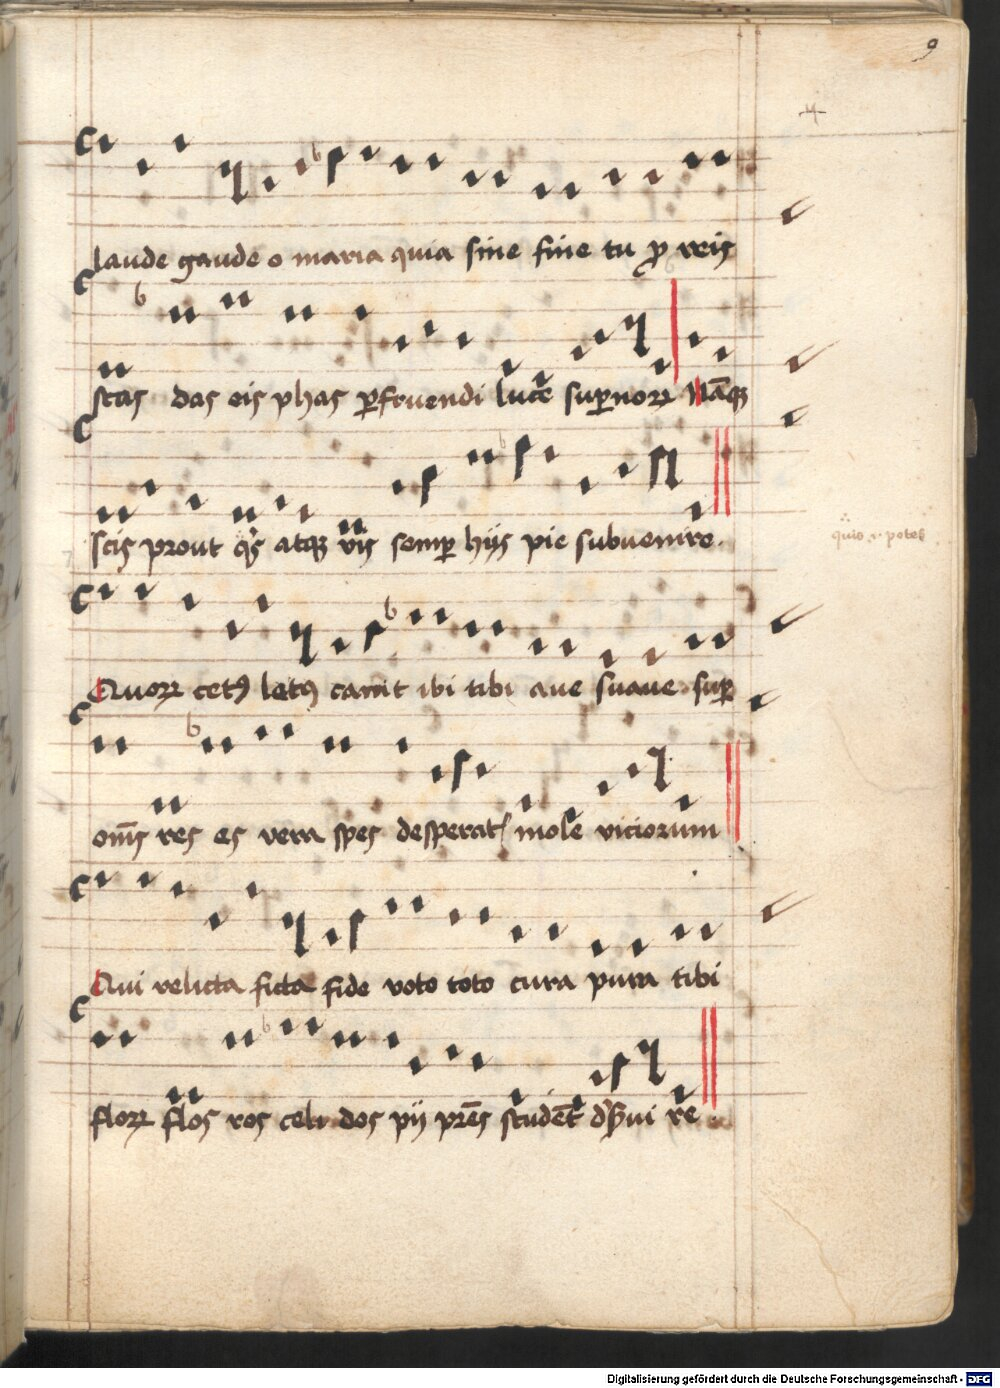 9
laude gaude o maria quia sine fine tu ꝓ reis
stas das eis phas ꝑfruendi luce suꝑnoꝝ Nāqꝫ
scis prout q̇s atqꝫ vis semꝑ hijs pie subuenire.
Quoꝝ cetꝰ letꝰ canit ibi tibi aue suaue suꝑ
om̄s res es vera spes desperat mole viciorum
Qui relicta ficta fide voto toto cura pura tibi
floꝝ flos ros celi dos pij pr̄es student re
Digitalisierung gefördert durch die Deutsche Forschungsgemeinschaft - DFG